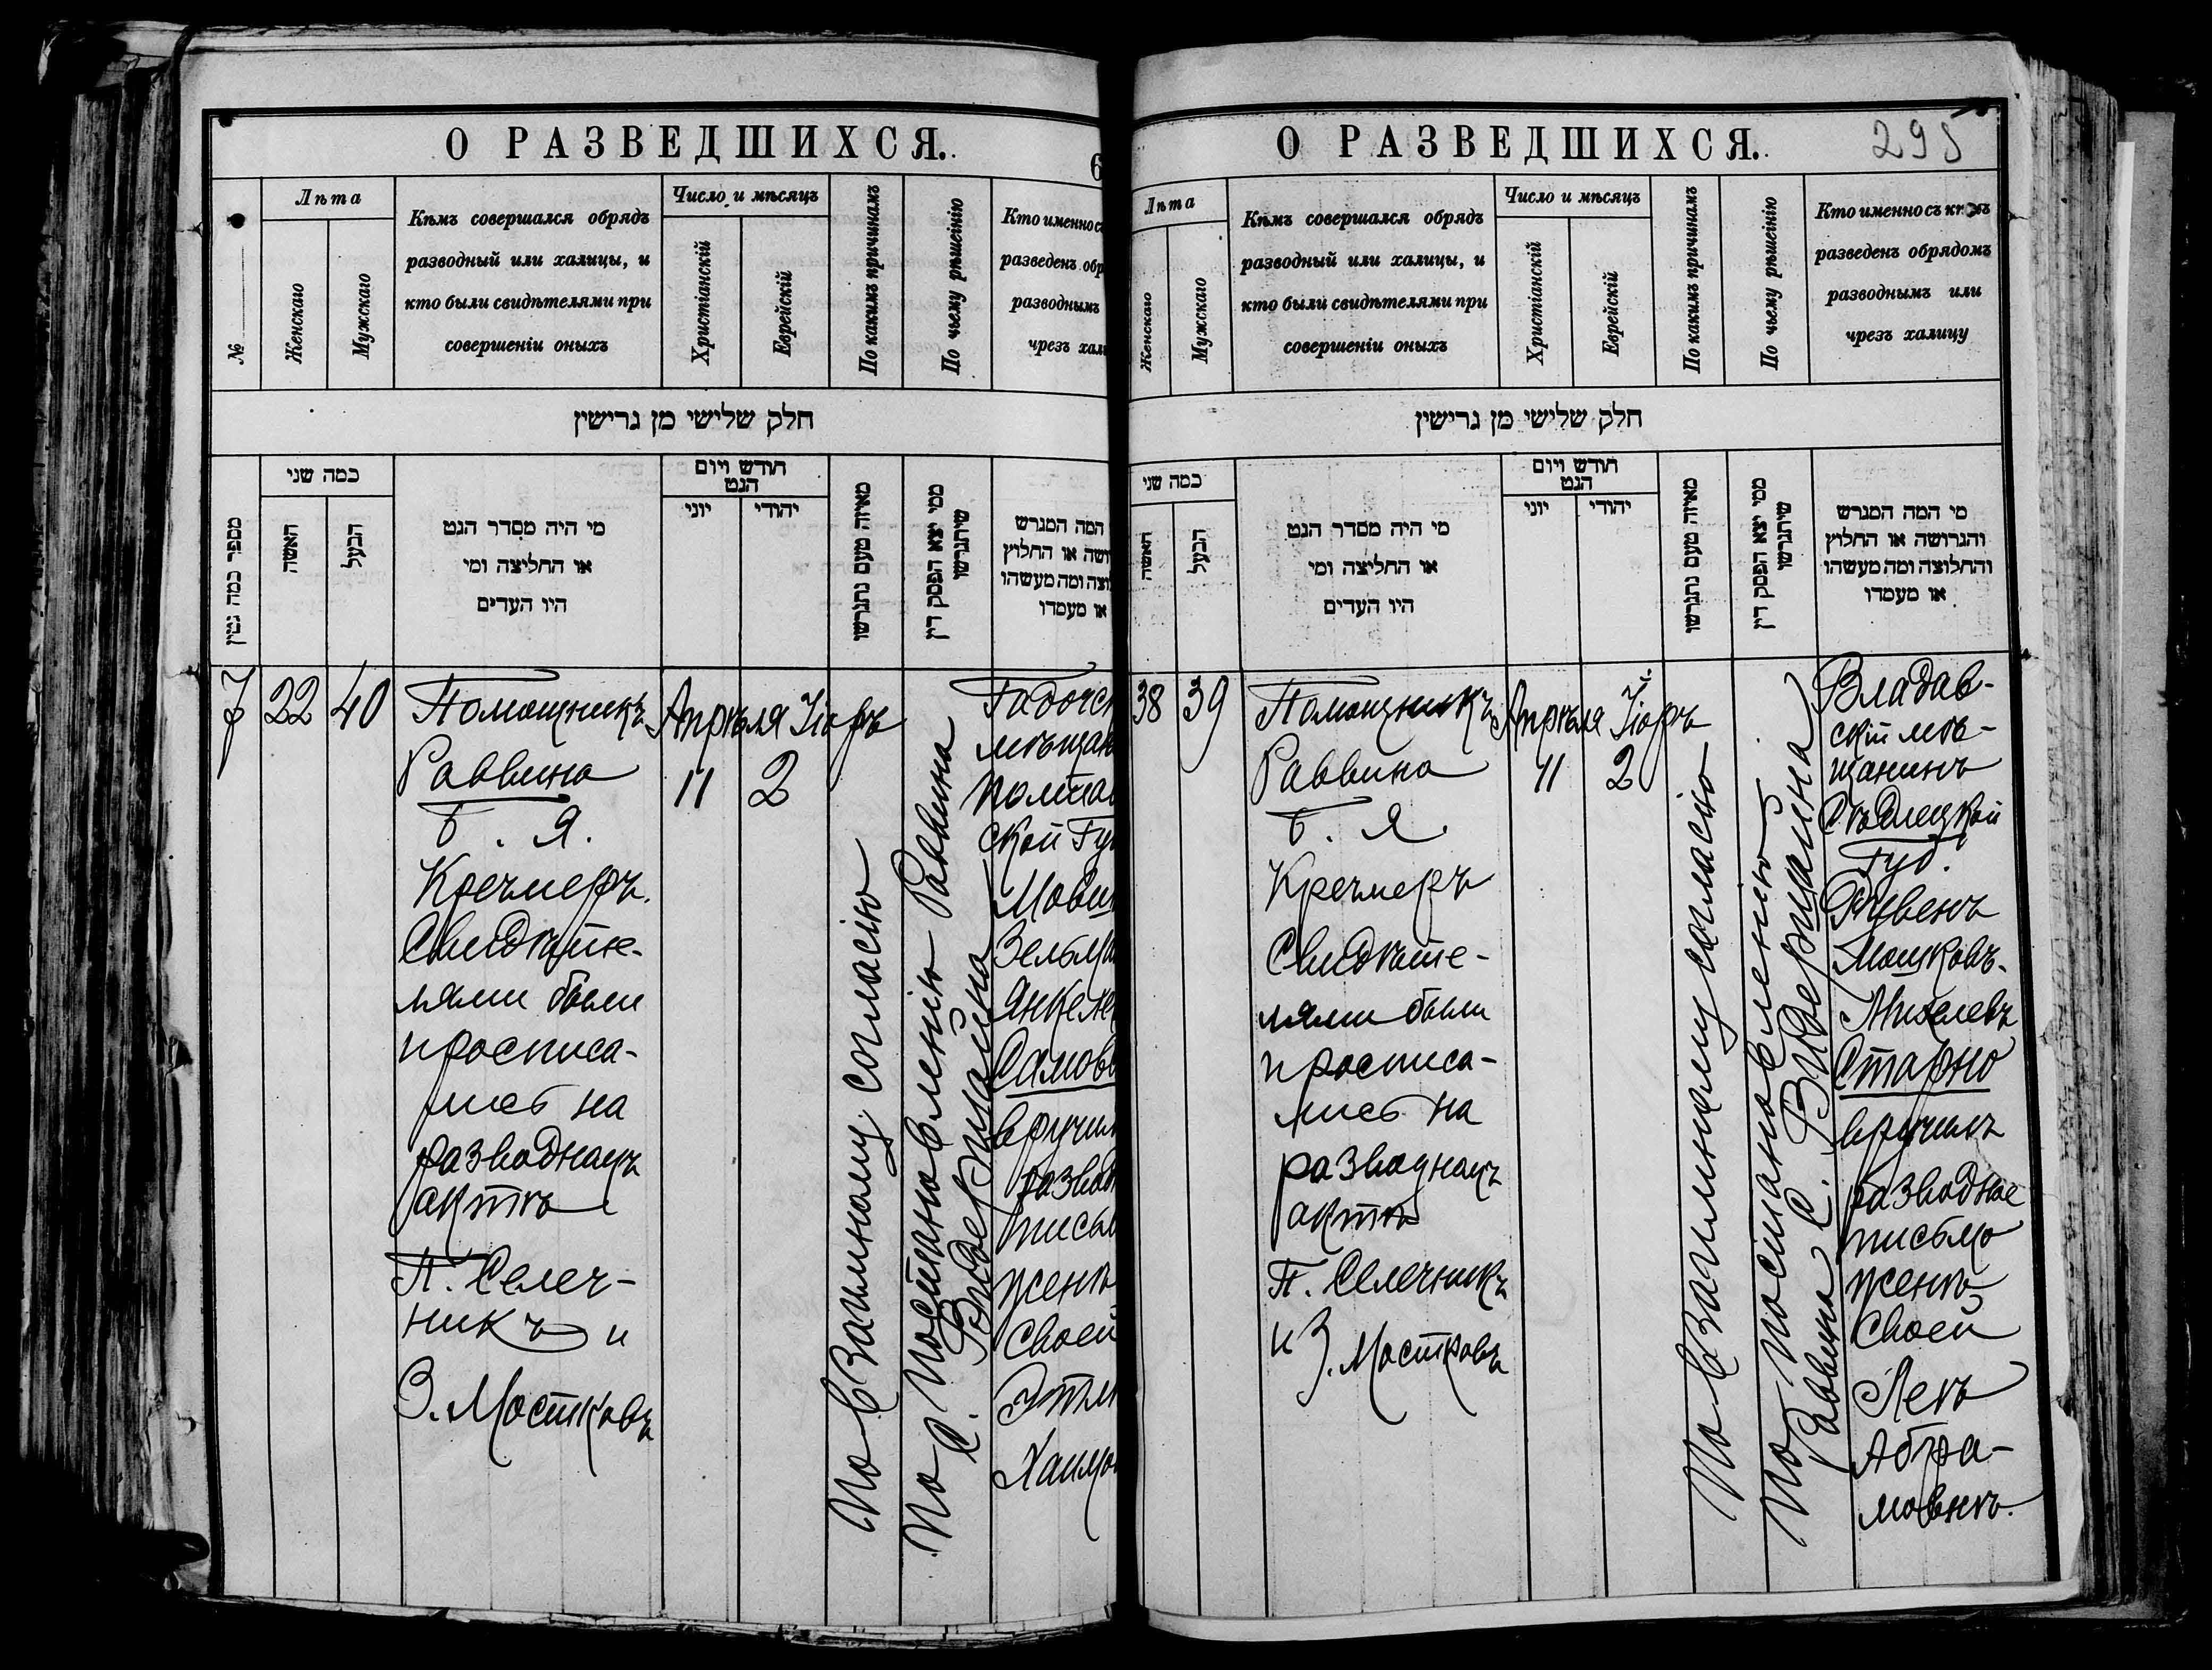 О РАЗВЕДШИХСЯ.
6
№
Лѣта
Женскаго
Мужскаго
Кѣмъ совершался обрядъ
разводный или халицы, и
кто были свидѣтелями при
совершеніи оныхъ
Число и мѣсяцъ
Христіанскій
Еврейскій
По какимъ причинамъ
По чьему рѣшенію
Кто именно съ
разведенъ обр
разводнымъ
чрезъ хал
חלק שלישי מן גרישין
מספר כמה גטין
כמה שני
האשה
הבעל
מי היה מסדר הגט
או החליצה ומי
היו העדים
חודש ויום
הגט
יוני
יהודי
מאיזה טעם נתגרשו
ממי יצא הפסק דין
שיתגרשו
המה המגרש
ושה או החלוץ
וצה ומה מעשהו
או מעמדו
7
22
40
Помощникъ
Раввина
Б. Я.
Кречмеръ.
Свидѣте-
лями были
и росписа-
лись на
разводномъ
актѣ
П. Селеч-
никъ и
З. Мостковъ
Апрѣля
11
Ніоръ
2
По взаимному согласію
По постановленію Раввина
С. Видерштайна
Гадячск
мѣщан
Полтав
ской Гу
Мовш
Зельма
Янкеле
Самов
вручил
развод
письм
женѣ
своей
Этл
Хаимо
О РАЗВЕДШИХСЯ.
295
Лѣта
Женскаго
Мужскаго
Кѣмъ совершался обрядъ
разводный или халицы, и
кто были свидѣтелями при
совершеніи оныхъ
Число и мѣсяцъ
Христіанскій
Еврейскій
По какимъ причинамъ
По чьему рѣшенію
Кто именно съ кѣмъ
разведенъ обрядомъ
разводнымъ или
чрезъ халицу
חלק שלישי מן גרישין
כמה שני
האשה
הבעל
מי היה מסדר הגט
או החליצה ומי
היו העדים
חודש ויום
הגט
יוני
יהודי
מאיזה טעם נתגרשו
ממי יצא הפסק דין
שיתגרשו
מי המה המגרש
והגרושה או החלוץ
והחלוצה ומה מעשהו
או מעמדו
38
39
Помощникъ
Раввина
Б. Я.
Кречмеръ
Свидѣте-
лями были
и росписа-
лись на
разводномъ
актѣ
П. Селечникъ
и З. Мостковъ
Апрѣля
11
Ніоръ
2
По взаимному согласію
По постановленію
Раввина С. Видерштайна
Владав-
скій мѣ-
щанинъ
Сѣдлецкой
Губ.
Рувенъ
Мошковъ-
Михелевъ
Старно
вручилъ
разводное
письмо
женѣ
своей
Леѣ
Абра-
мовнѣ.